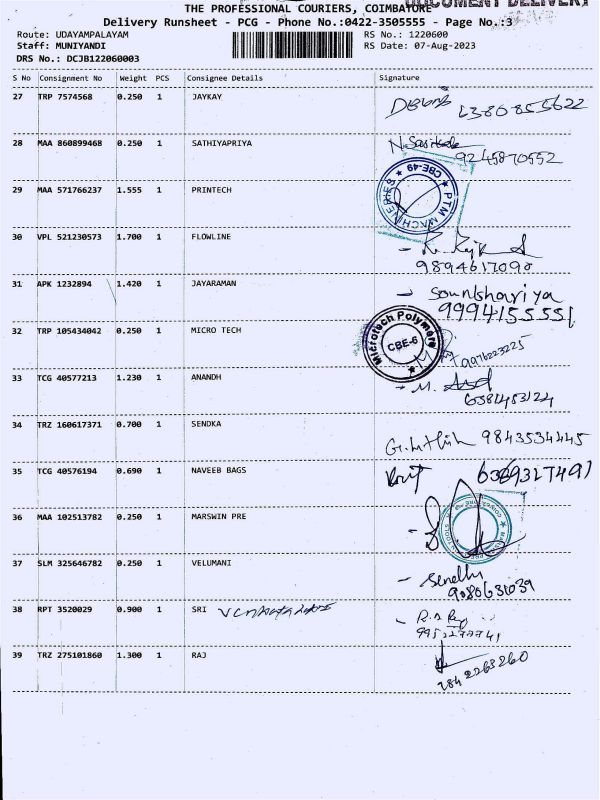 DOCUMENT DELIVERY
THE PROFESSIONAL COURIERS, COIMBATORE
Delivery Runsheet - PCG - Phone No.:0422-3505555 - Page No.:3
Route: UDAYAMPALAYAM RS No.: 1220600
Staff: MUNIYANDI RS Date: 07-Aug-2023
DRS No.: DCJB122060003
S No Consignment No Weight PCS Consignee Details Signature
27 TRP 7574568 0.250 1 JAYKAY
28 MAA 860899468 0.250 1 SATHIYAPRIYA N. Sasikala
9245870552
29 MAA 571766237 1.555 1 PRINTECH PTM MACHINERIES CBE-49
30 VPL 521230573 1.700 1 FLOWLINE
9894617090
31 APK 1232894 1.420 1 JAYARAMAN
9994155551
32 TRP 105434042 0.250 1 MICRO TECH Microtech Polymers CBE-6
9976223225
33 TCG 40577213 1.230 1 ANANDH M.
34 TRZ 160617371 0.700 1 SENDKA 9843534445
35 TCG 40576194 0.690 1 NAVEEB BAGS 6369327491
36 MAA 102513782 0.250 1 MARSWIN PRE
37 SLM 325646782 0.250 1 VELUMANI
9080631039
38 RPT 3520029 0.900 1 SRI
39 TRZ 275101860 1.300 1 RAJ
9842263260